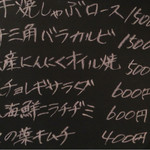 焼しゃぶロース 1500
三角バラカルビ 1500
産にんにくオイル焼 500
チョレギサラダ 600円
海鮮ニラチヂミ 600円
の葉キムチ 400円